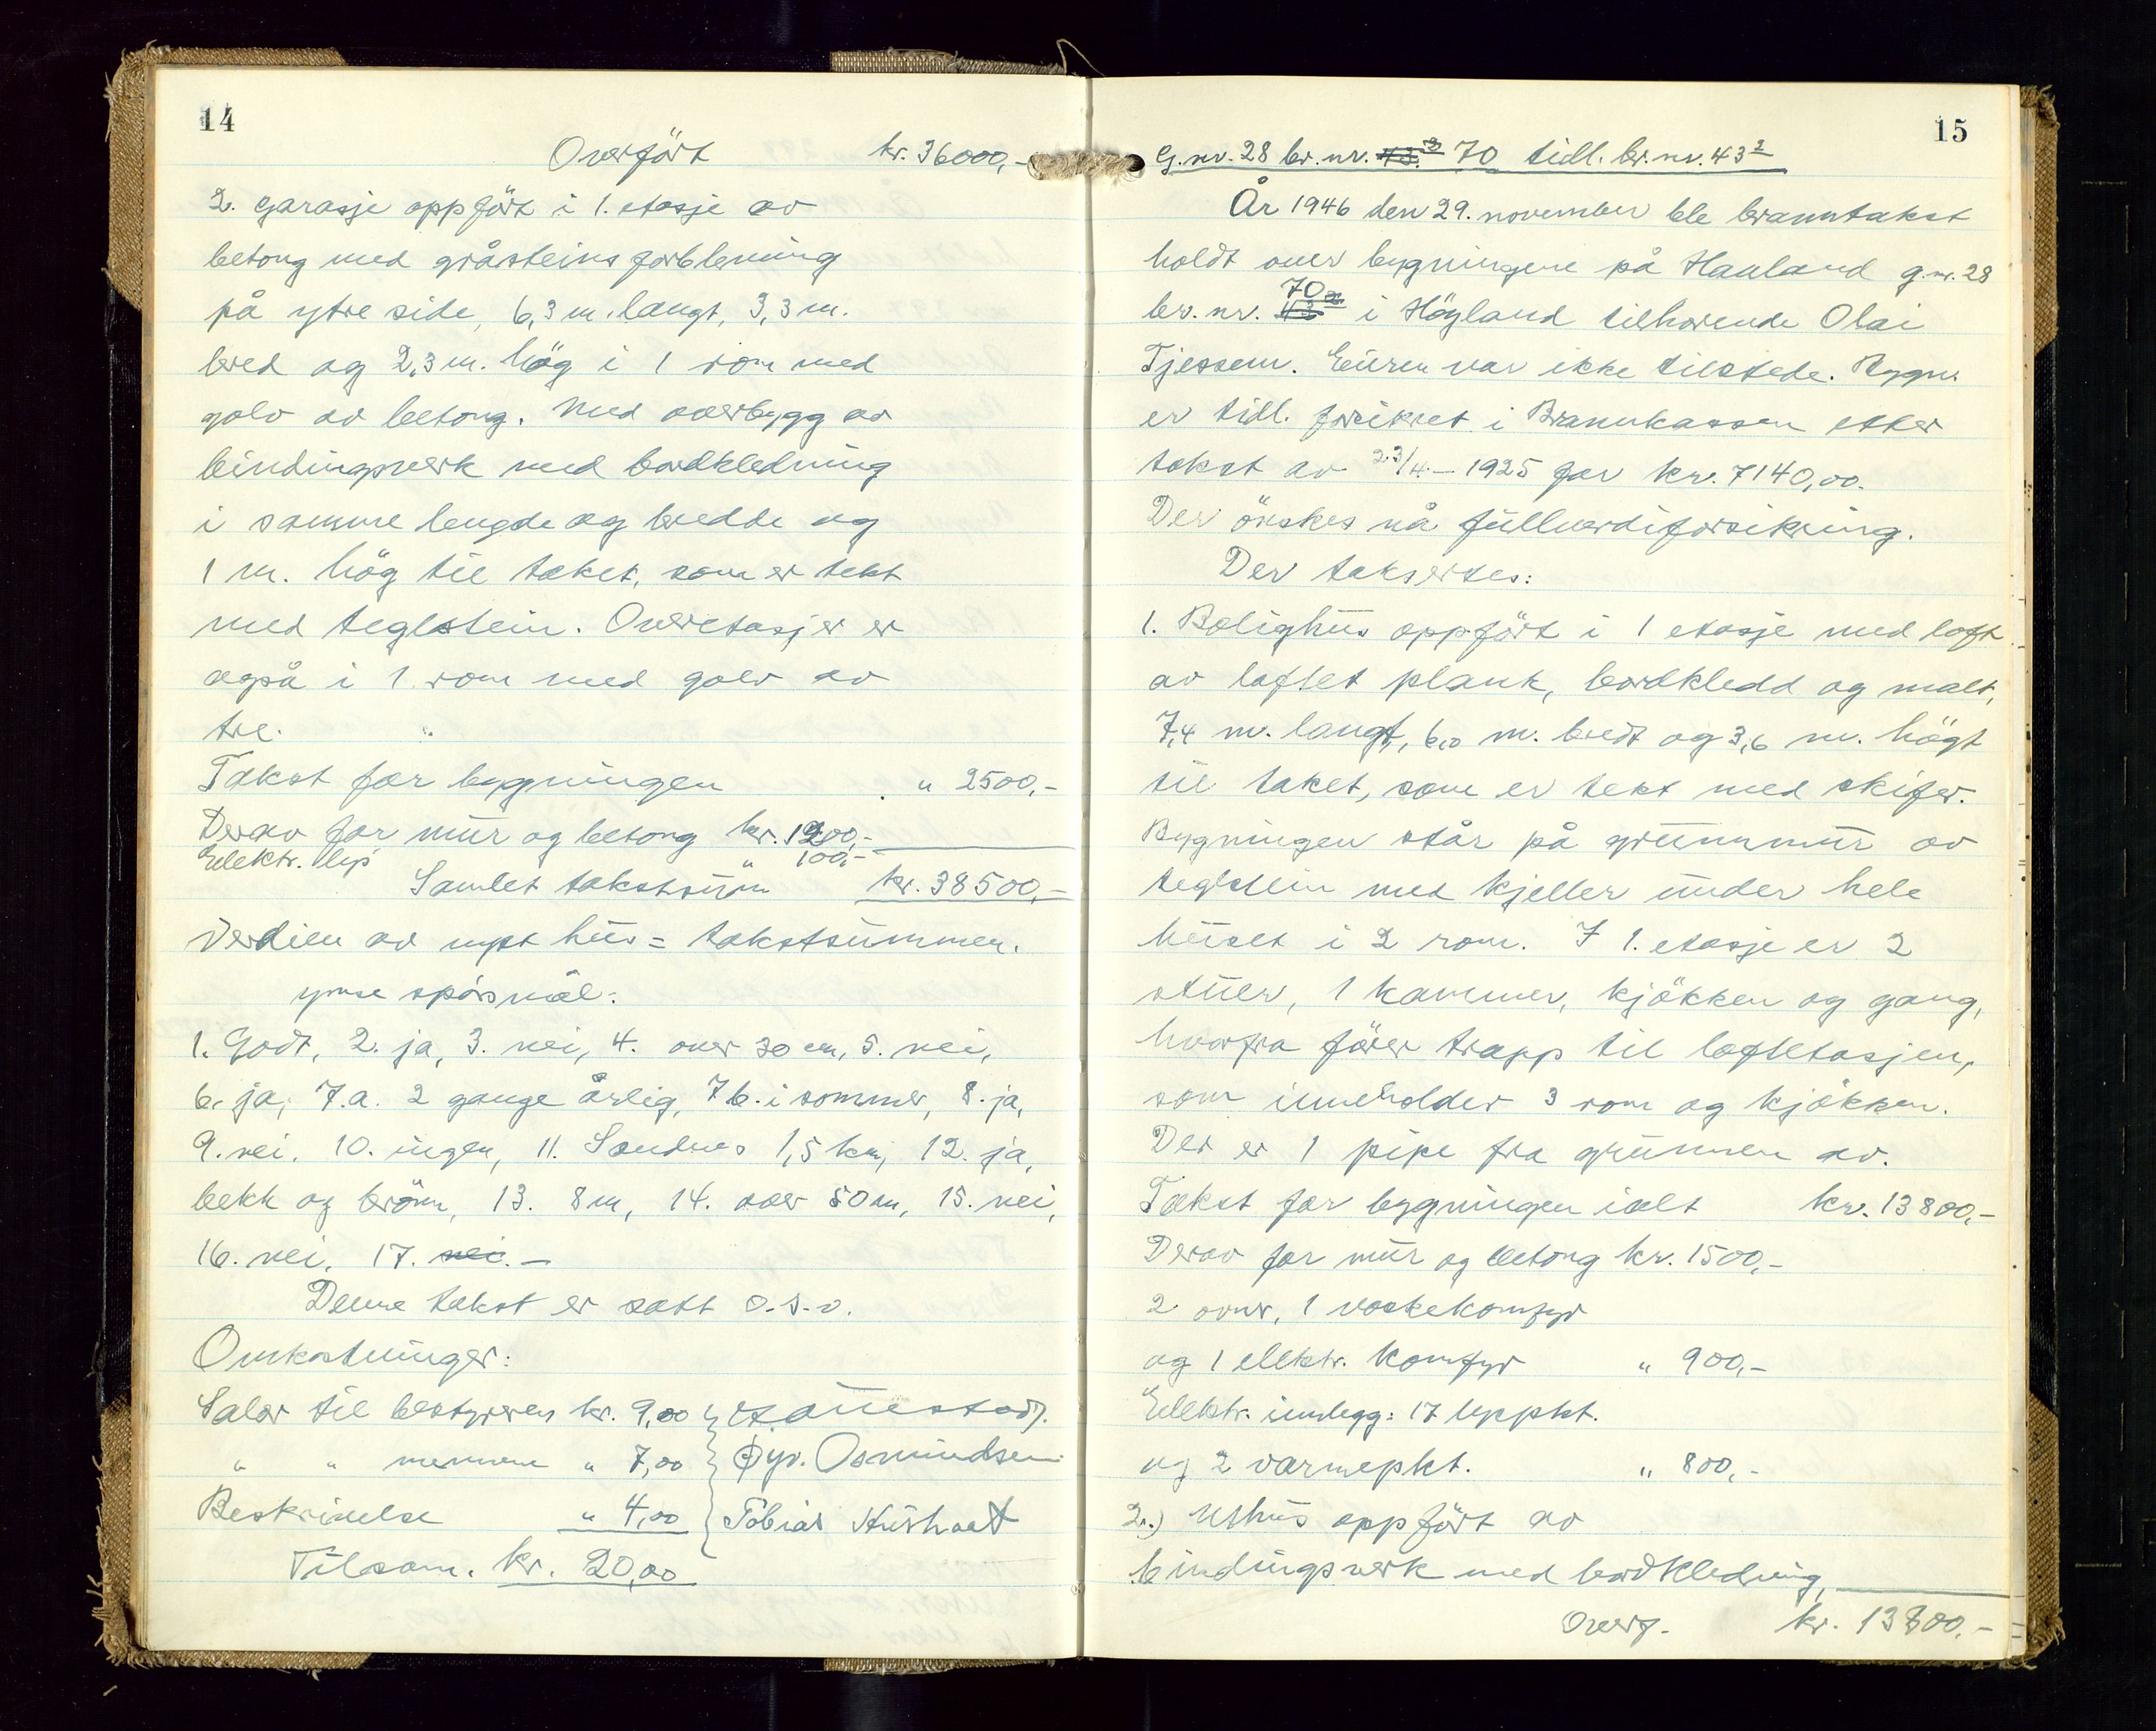 14
Overfört kr. 36000,-
2. garasje oppfört i 1. etasje av
betong med gråsteins forblening
på ytre side, 6,3 m. langt, 3,3 m.
bred og 2,3 m. hög i 1 rom med
golv av betong. Med overbygg av
bindingsverk med bordkledning
i samme lengde og bredde og
1 m. hög til taket, som er tekt
med teglstein. Overetasjer er
også i 1 rom med golv av
tre.
Takst for bygningen " 2500,-
Derav for mur og betong kr. 1200,-
Elektr. lys " 100,-
Samlet takstsum kr. 38500,-
Verdien av nytt hus = takstsummen.
Ymse spörsmål:
1. Godt, 2. ja, 3. nei, 4. over 30 cm, 5. nei,
6. ja, 7.a. 2 gange årlig, 7 b. i sommer, 8. ja,
9. nei. 10. ingen, 11. Sandnes 1,5 km, 12. ja,
bekk og brönn, 13. 8 m, 14. over 50 m, 15. nei,
16. nei, 17. nei. -
Denne takst er satt o.s.v.
Omkostninger:
Salær til bestyreren kr. 9,00
" " mennene " 7,00 Øyv. Osmundsen
Beskrivelse " 4,00 Tobias
Tilsam. kr. 20,00
15
G.nr. 28 br. nr. 43.2 70 tidl. br. nr. 43 2
År 1946 den 29. november ble branntakst
holdt over bygningene på Hauland g.nr. 28
br. nr. 43 2 70 i Höyland tilhörende Olai
Tjessem. Eieren var ikke tilstede. Bygn.
er tidl. forsikret i Brannkassen etter
takst av 23/4 - 1925 for kr. 7140,00.
Der önskes nå fullverdiforsikring.
Der takseres:
1. Bolighus oppfört i 1 etasje med loft
av laftet plank, bordkledd og malt,
7,4 m. langt, 6,0 m. bredt og 3,6 m. högt
til taket, som er tekt med skifer.
Bygningen står på grunnmur av
teglstein med kjeller under hele
huset i 2 rom. I 1. etasje er 2
stuer, 1 kammer, kjökken og gang,
hvorfra förer trapp til loftetasjen,
som inneholder 3 rom og kjökken.
Der er 1 pipe fra grunnen av.
Takst for bygningen ialt kr. 13800,-
Derav for mur og betong kr. 1500,-
2 ovner, 1 vaskekomfyr
og 1 elektr. komfyr " 900,-
Elektr. innlegg: 17 lyspkt.
og 2 varmepkt. " 800,-
2.) Uthus oppfört av
bindingsverk med bordkledning,
Overf. kr. 13800,-